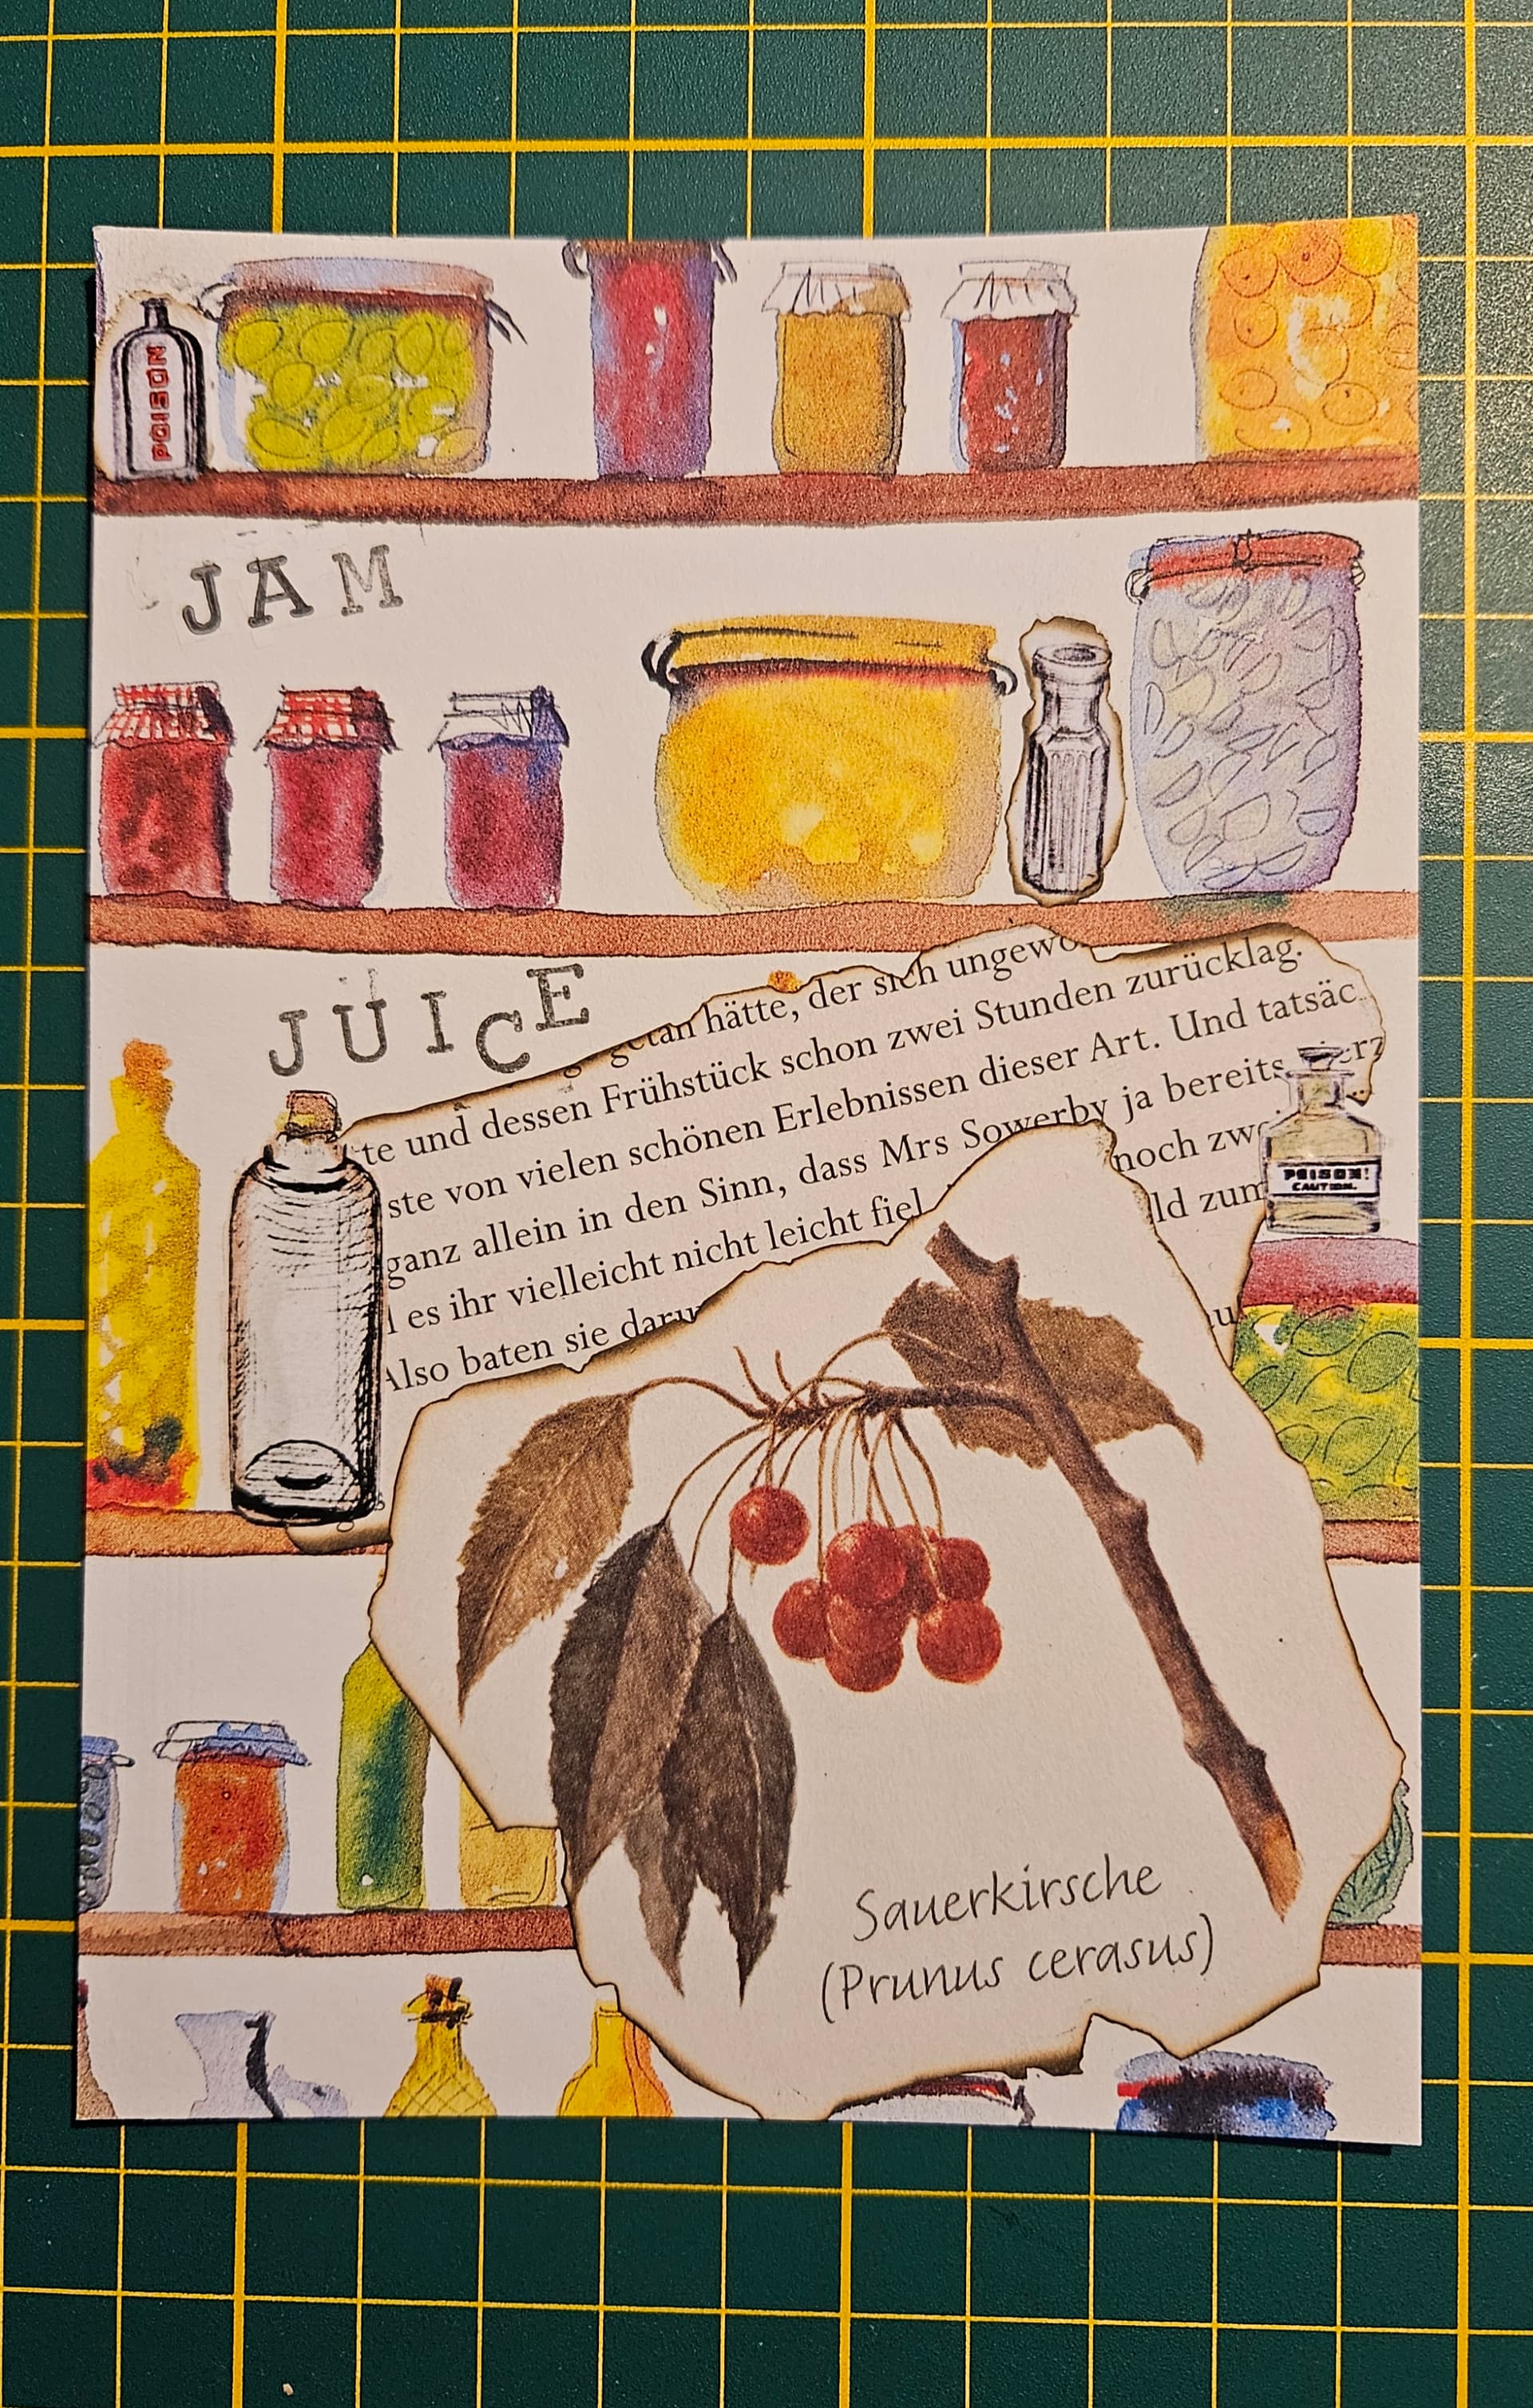 POISON
JAM
JUICE
getan hätte, der sich
te und dessen Frühstück schon zwei Stunden zurücklag.
ste von vielen schönen Erlebnissen dieser Art. Und
ganz allein in den Sinn, dass Mrs Sowerby ja bereits
es ihr vielleicht nicht leicht fiel noch
Also baten sie ld zum
POISON!
CAUTION.
Sauerkirsche
(Prunus cerasus)